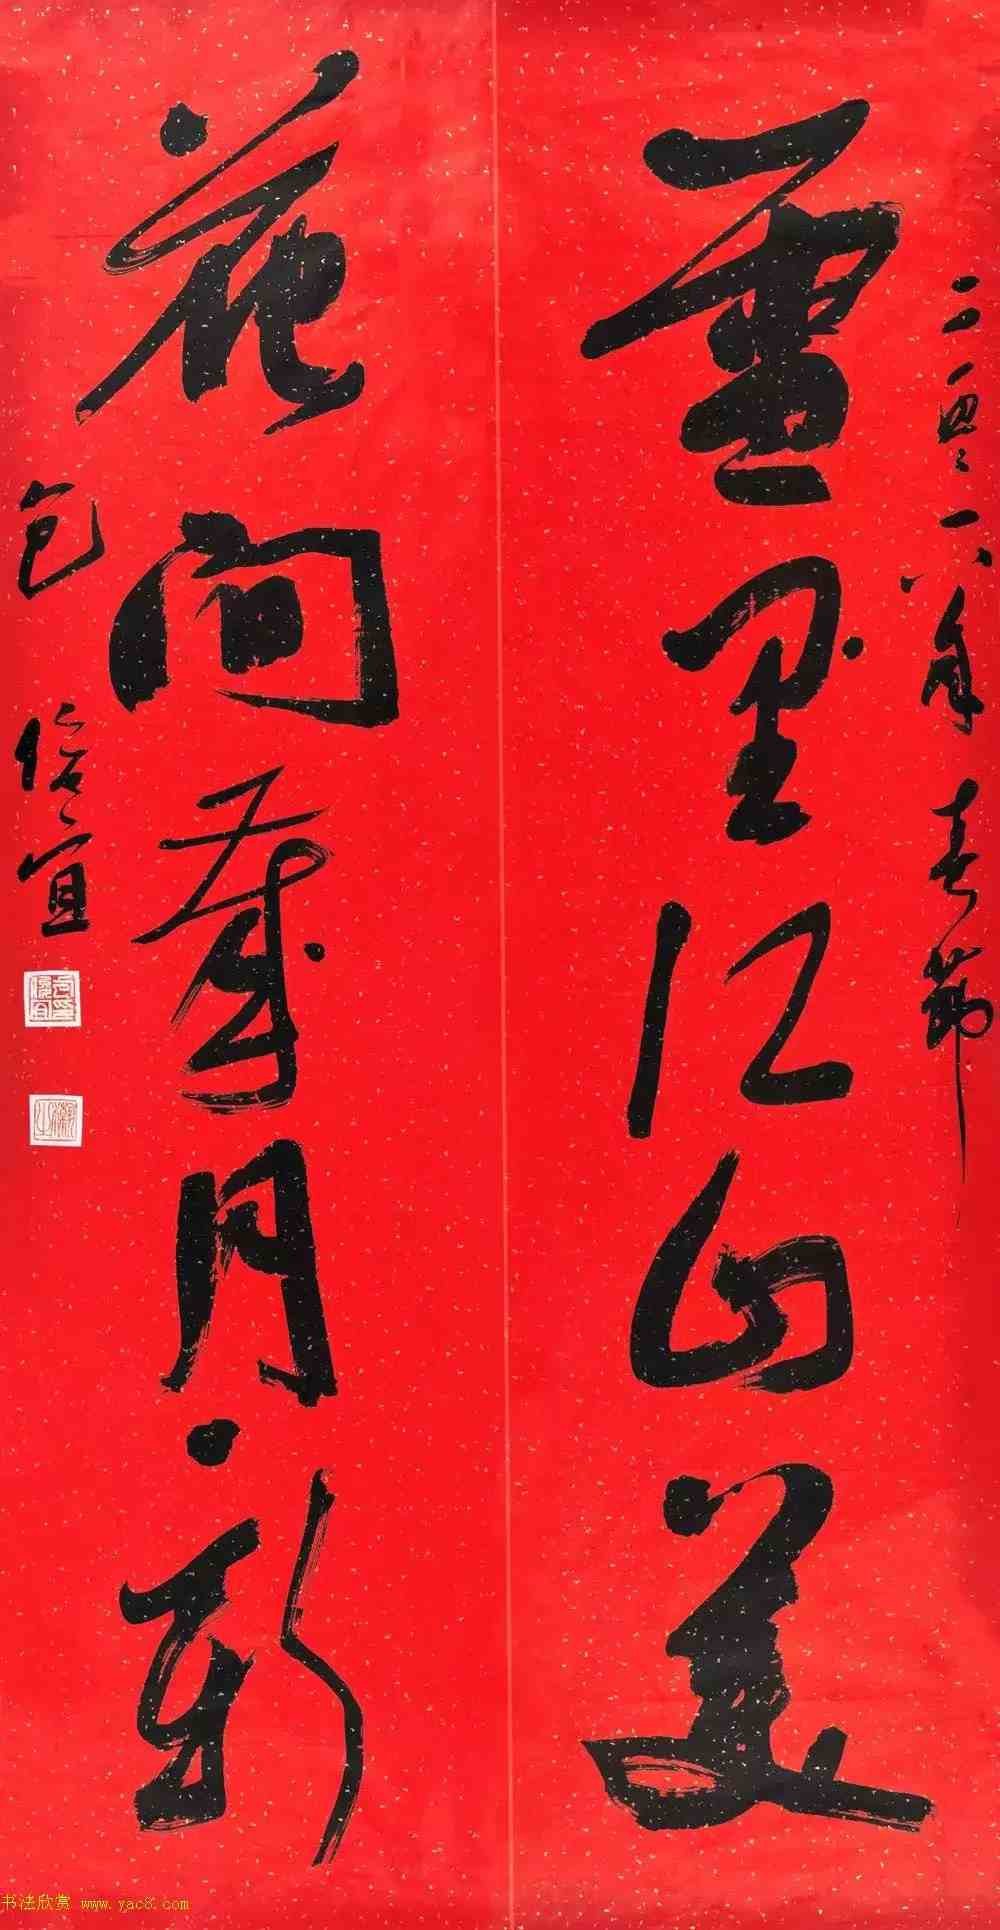 二零一八年春节
雪里江山美
花间岁月新
包俊宜
书法欣赏 www.yac8.com